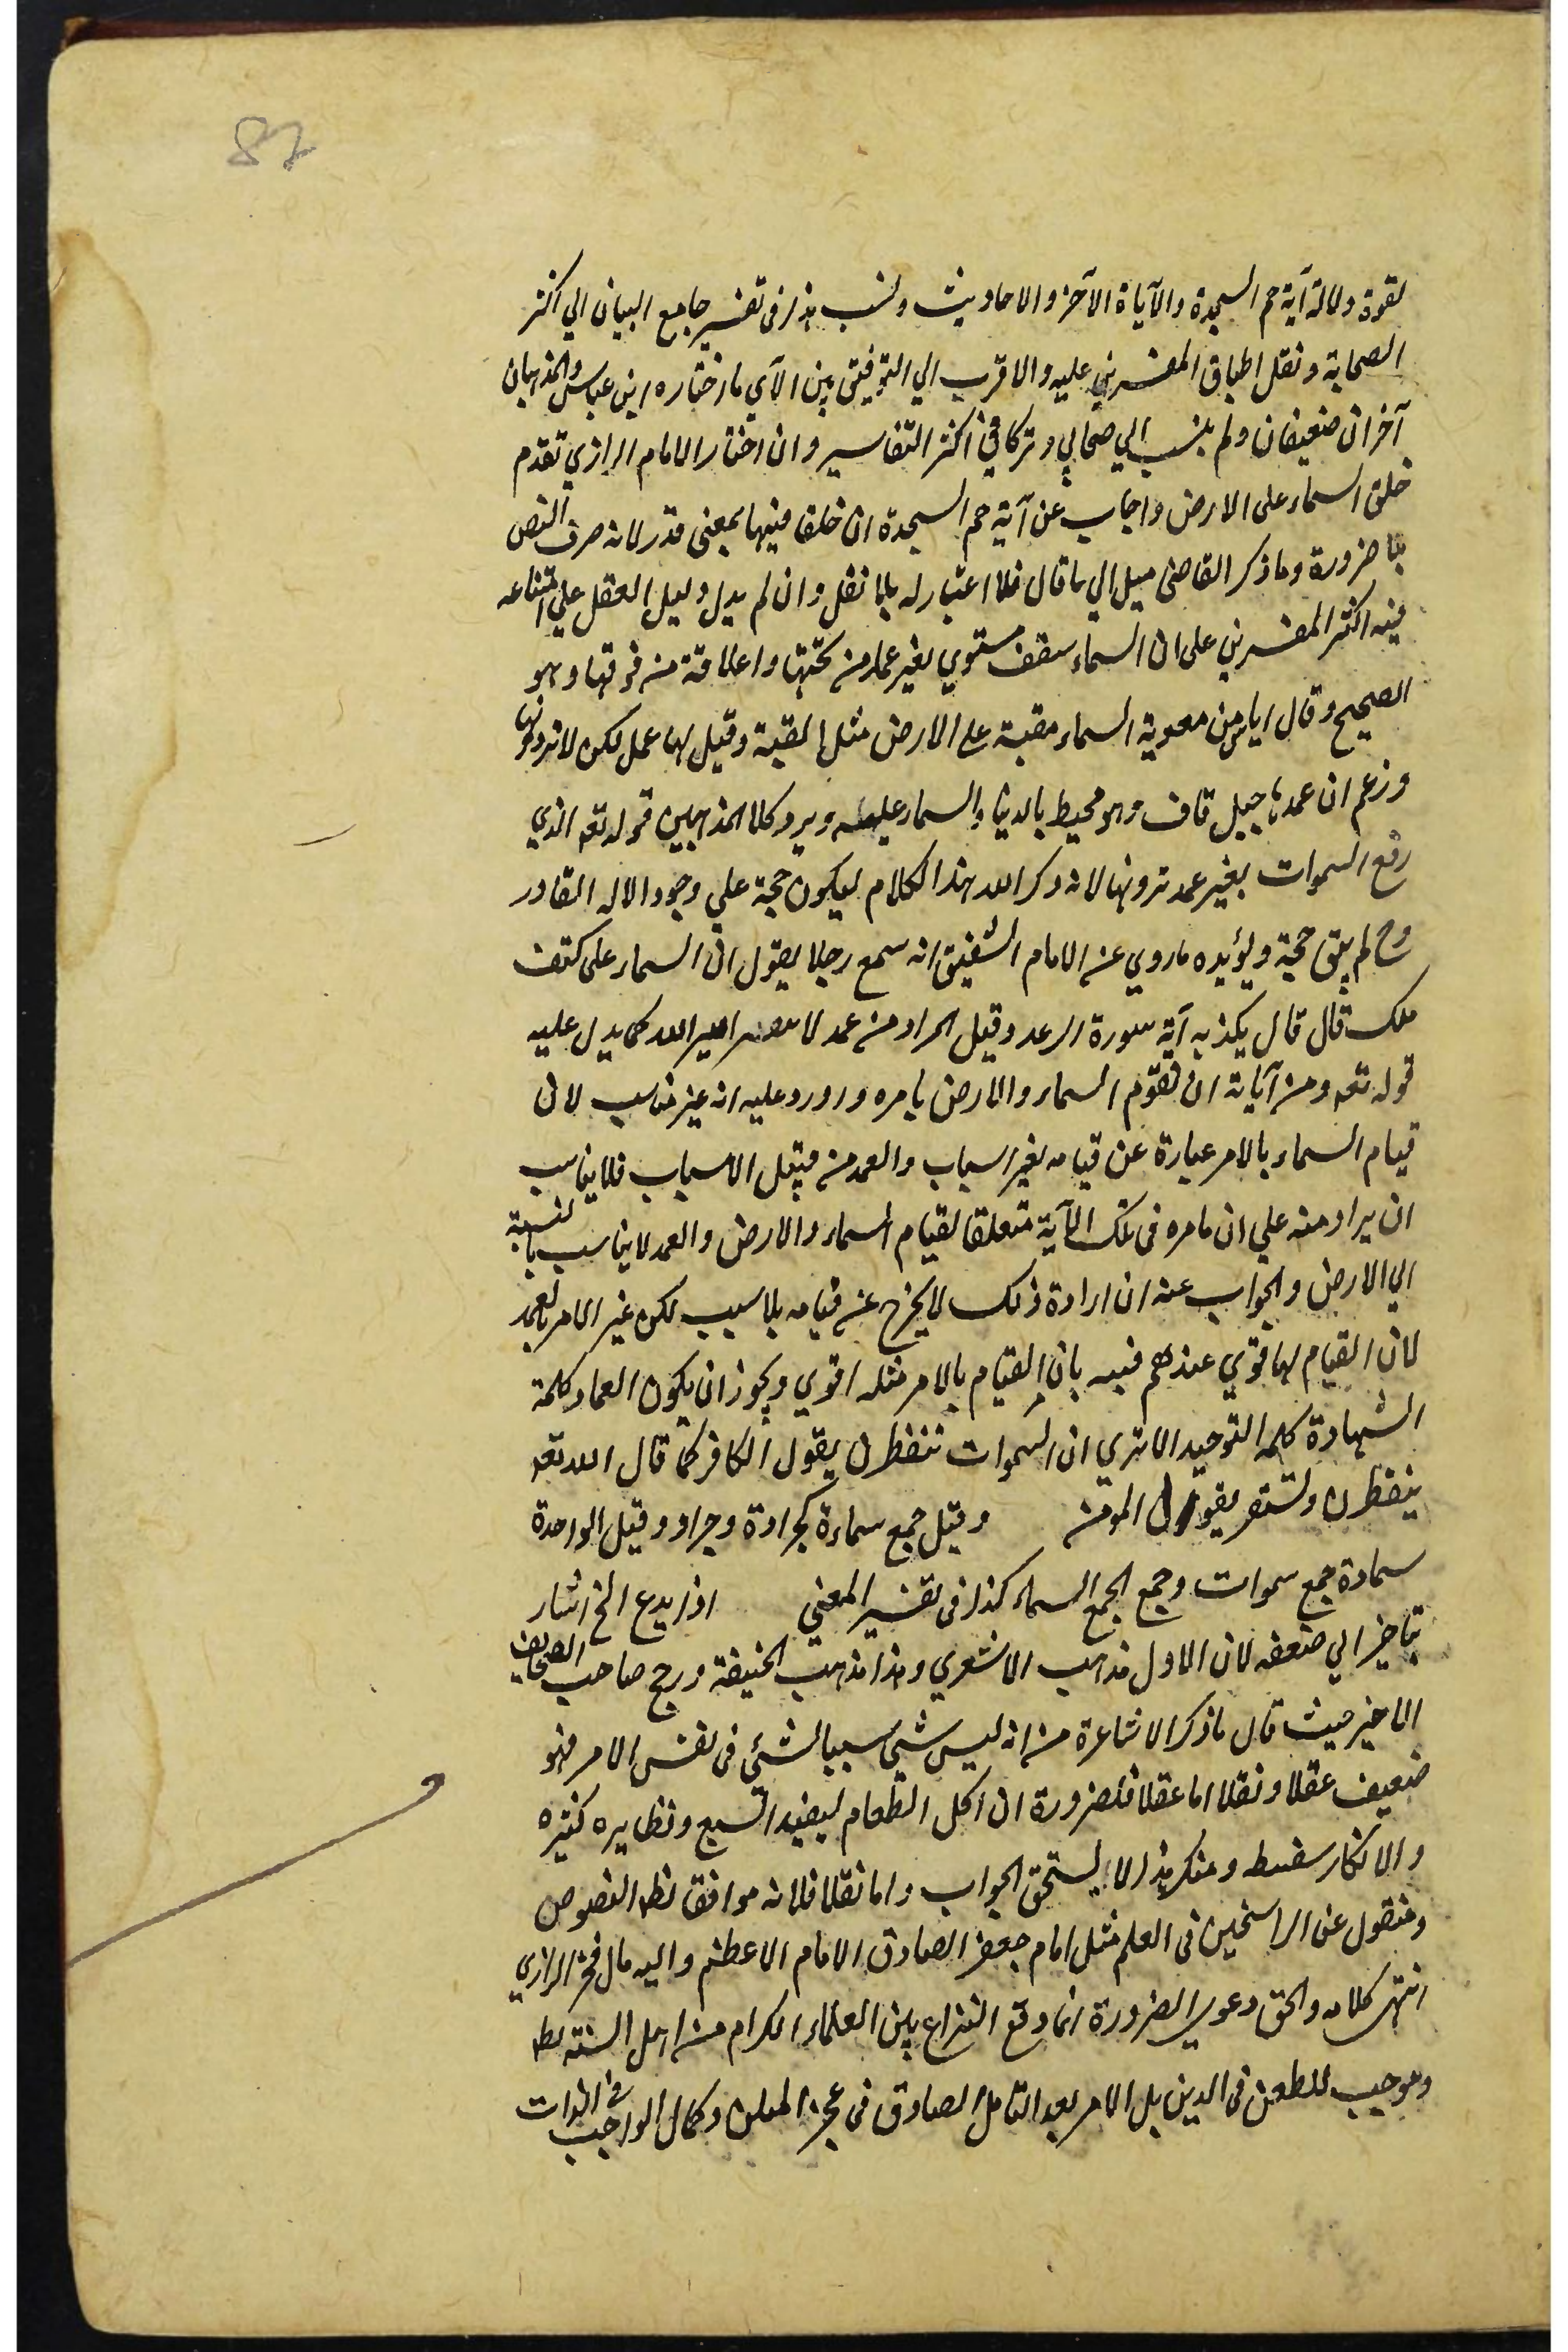 87
لقوة دلالة آية حم السجدة والآياة الآخر والاحاديث ونسب هذا فى تفسير جامع البيان الي اكثر
الصحابة ونقل اطباق المفسرين عليه والاقرب الي التوفيق بين الآي ما اختاره ابن عباس والمذهبان
آخران ضعيفان ولم ينسب الي صحابي وتركا في اكثر التفاسير وان اختار الامام الرازي تقدم
خلق السماء على الارض واجاب عن آية حم السجدة ان خلق فيها بمعنى قدر لانه صرف النص
بلا ضرورة وما ذكر القاضى ميل الي ما قال فلا اعتبار له بلا نقل وان لم يدل دليل العقل علي امتناعه
فيه اكثر المفسرين على ان السماء سقف مستوي بغير عماد من تحتها واعلاقة من فوقها وهو
الصحيح وقال اياس بن معوية السماء مقببة علي الارض مثل القبة وقيل لها عمل لكن لا ترونها
وزعم ان عمدها جبل قاف وهو محيط بالدنيا والسماء عليه ويرد كلا المذهبين قوله تعه الذي
رفع السموات بغير عمد ترونها لانه ذكر الله هذا الكلام ليكون حجة علي وجود الاله القادر
وح لم يبق حجة ويؤيده ما روي عن الامام الشقيق انه سمع رجلا يقول ان السماء على كتف
ملك قال قال يكذبه آية سورة الرعد وقيل المراد من عمد لا امر الله كما يدل عليه
قوله تعه ومن آياته ان تقوم السماء والارض بامره واورد عليه انه غير مناسب لان
قيام السماء بالامر عبارة عن قيامه بغير اسباب والعمد من قبيل الاسباب فلا يناسب
ان يراد منه علي ان بامره فى تلك الآية متعلقا لقيام السماء والارض والعمد لا يناسب بالنسبة
الي الارض والجواب عنه ان ارادة ذلك لا يخرج عن قيامه بلا سبب لكن عبر الامر بالعمد
لان القيام لها قوي عندهم فنبه بان القيام بالامر مثله اقوي ويجوز ان يكون العماد كلمة
الشهادة كلمة التوحيد الا تري ان السموات تنفطرن بقول الكافر كما قال الله تعه
ينفطرن ولتستقر بقول المؤمن وقيل جمع سماءة كجرادة وجراد وقيل الواحدة
سماءة جمع سموات وجمع الجمع السماء كذا فى تفسير المغني اذ ابدع الخ اشار
بتاخير الي ضعفه لان الاول مذهب الاشعري وهذا مذهب الحنيفة ورجح صاحب الصحايف
الاخير حيث قال ما ذكر الاشاعرة من انه ليس شئ سببا لشئ فى نفس الامر فهو
ضعيف عقلا ونقلا اما عقلا فلضرورة ان اكل الطعام ليفيد الشبع ونظايره كثيره
والانكار سفسطه ومنكر هذا لا يستحق الجواب واما نقلا فلانه موافق لظه النصوص
ومنقول عن الراسخين فى العلم مثل امام جعفر الصادق الامام الاعظم واليه مال فخر الرازي
انتهى كلامه والحق دعوي الضرورة انما وقع النزاع بين العلماء الكرام من اهل السنة
وموجب للطعن فى الدين بل الامر بعد التامل الصادق فى عجز الممكن وكمال الواجب في الذات